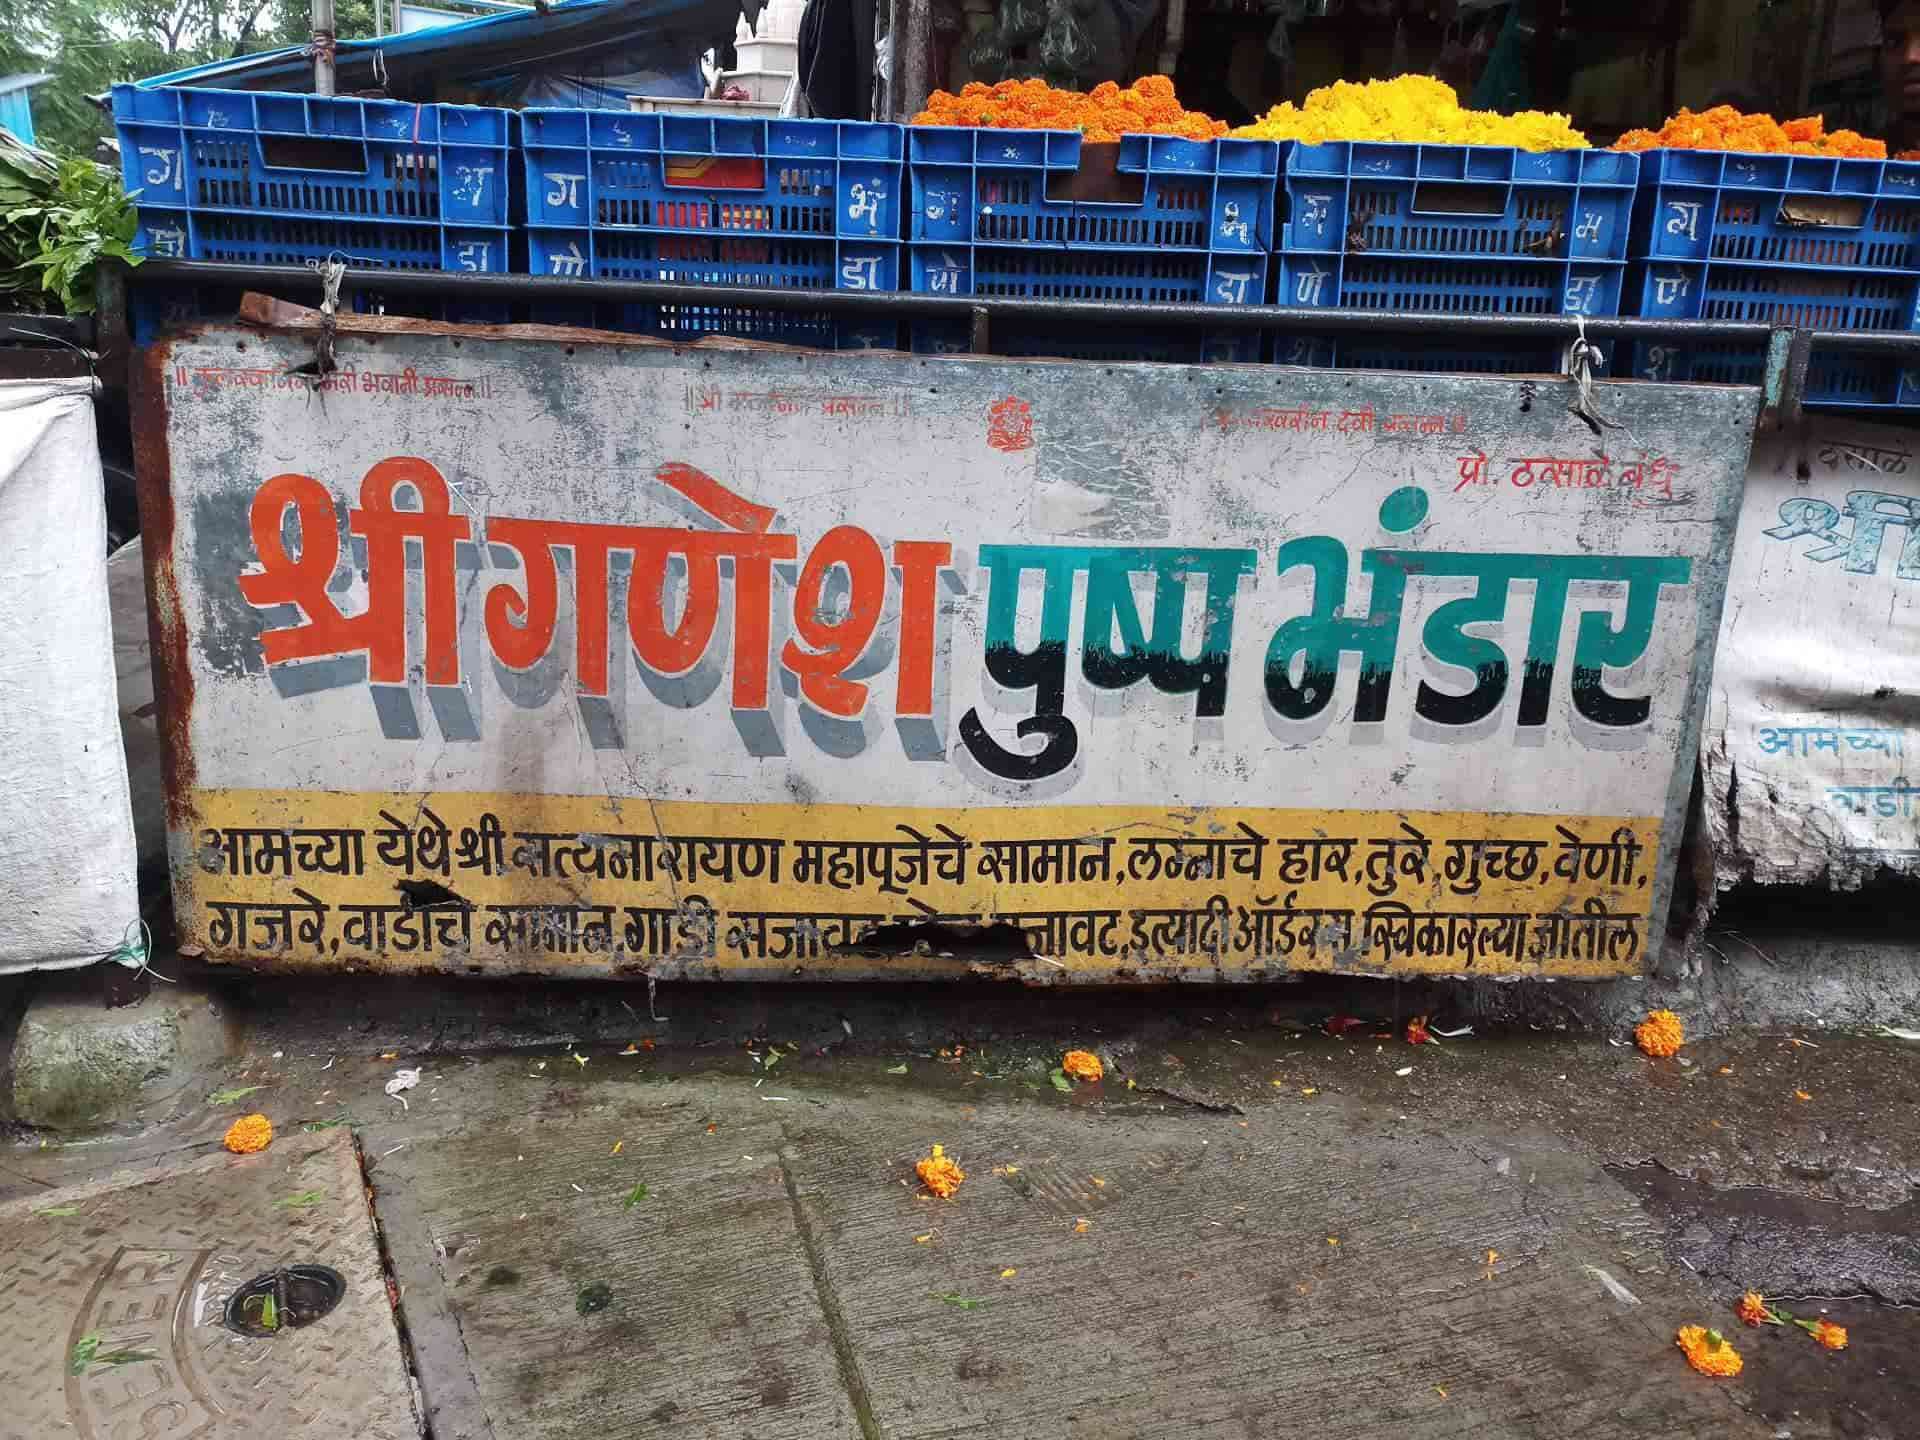 ग भं ग भं ग भं ग भं ग
णे डा णे डा णे डा णे डा णे
भवानी प्रसन्न ॥
॥ श्री प्रसन्न ॥
देवी प्रसन्न ॥
प्रो. ठत्साळे बंधु
श्री गणेश पुष्प भंडार
आमच्या येथे श्री सत्यनारायण महापूजेचे सामान, लग्नाचे हार, तुरे, गुच्छ, वेणी,
गजरे, वाडीचे सामान, गाडी सजावट इत्यादी ऑर्डरस स्विकारल्या जातील
वसाळे
श्री
आमच्या
वाडी